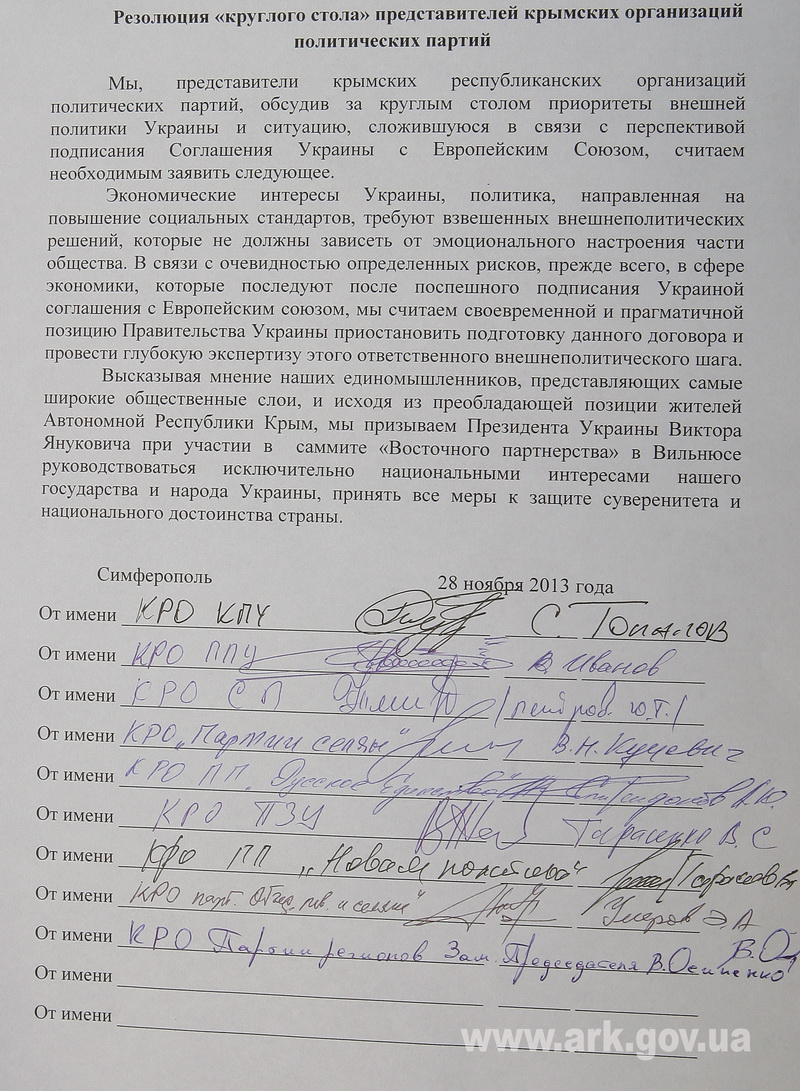 Резолюция «круглого стола» представителей крымских организаций
политических партий
Мы, представители крымских республиканских организаций
политических партий, обсудив за круглым столом приоритеты внешней
политики Украины и ситуацию, сложившуюся в связи с перспективой
подписания Соглашения Украины с Европейским Союзом, считаем
необходимым заявить следующее.
Экономические интересы Украины, политика, направленная на
повышение социальных стандартов, требуют взвешенных внешнеполитических
решений, которые не должны зависеть от эмоционального настроения части
общества. В связи с очевидностью определенных рисков, прежде всего, в сфере
экономики, которые последуют после поспешного подписания Украиной
соглашения с Европейским союзом, мы считаем своевременной и прагматичной
позицию Правительства Украины приостановить подготовку данного договора и
провести глубокую экспертизу этого ответственного внешнеполитического шага.
Высказывая мнение наших единомышленников, представляющих самые
широкие общественные слои, и исходя из преобладающей позиции жителей
Автономной Республики Крым, мы призываем Президента Украины Виктора
Януковича при участии в саммите «Восточного партнерства» в Вильнюсе
руководствоваться исключительно национальными интересами нашего
государства и народа Украины, принять все меры к защите суверенитета и
национального достоинства страны.
Симферополь 28 ноября 2013 года
От имени КРО КПУ С.
От имени КРО ППУ В. Иванов
От имени КРО СП /Петров Ю.Г./
От имени КРО „Партии селян" В.Н.
От имени КРО ПП „Русское Единство"
От имени КРО ПЗУ Тарасенко В. С
От имени КРО ПП „Новая политика" Тарасов
От имени КРО парт. Умеров Э.А
От имени КРО Партии регионов Зам. Председателя В. Осипенко
От имени
От имени
www.ark.gov.ua